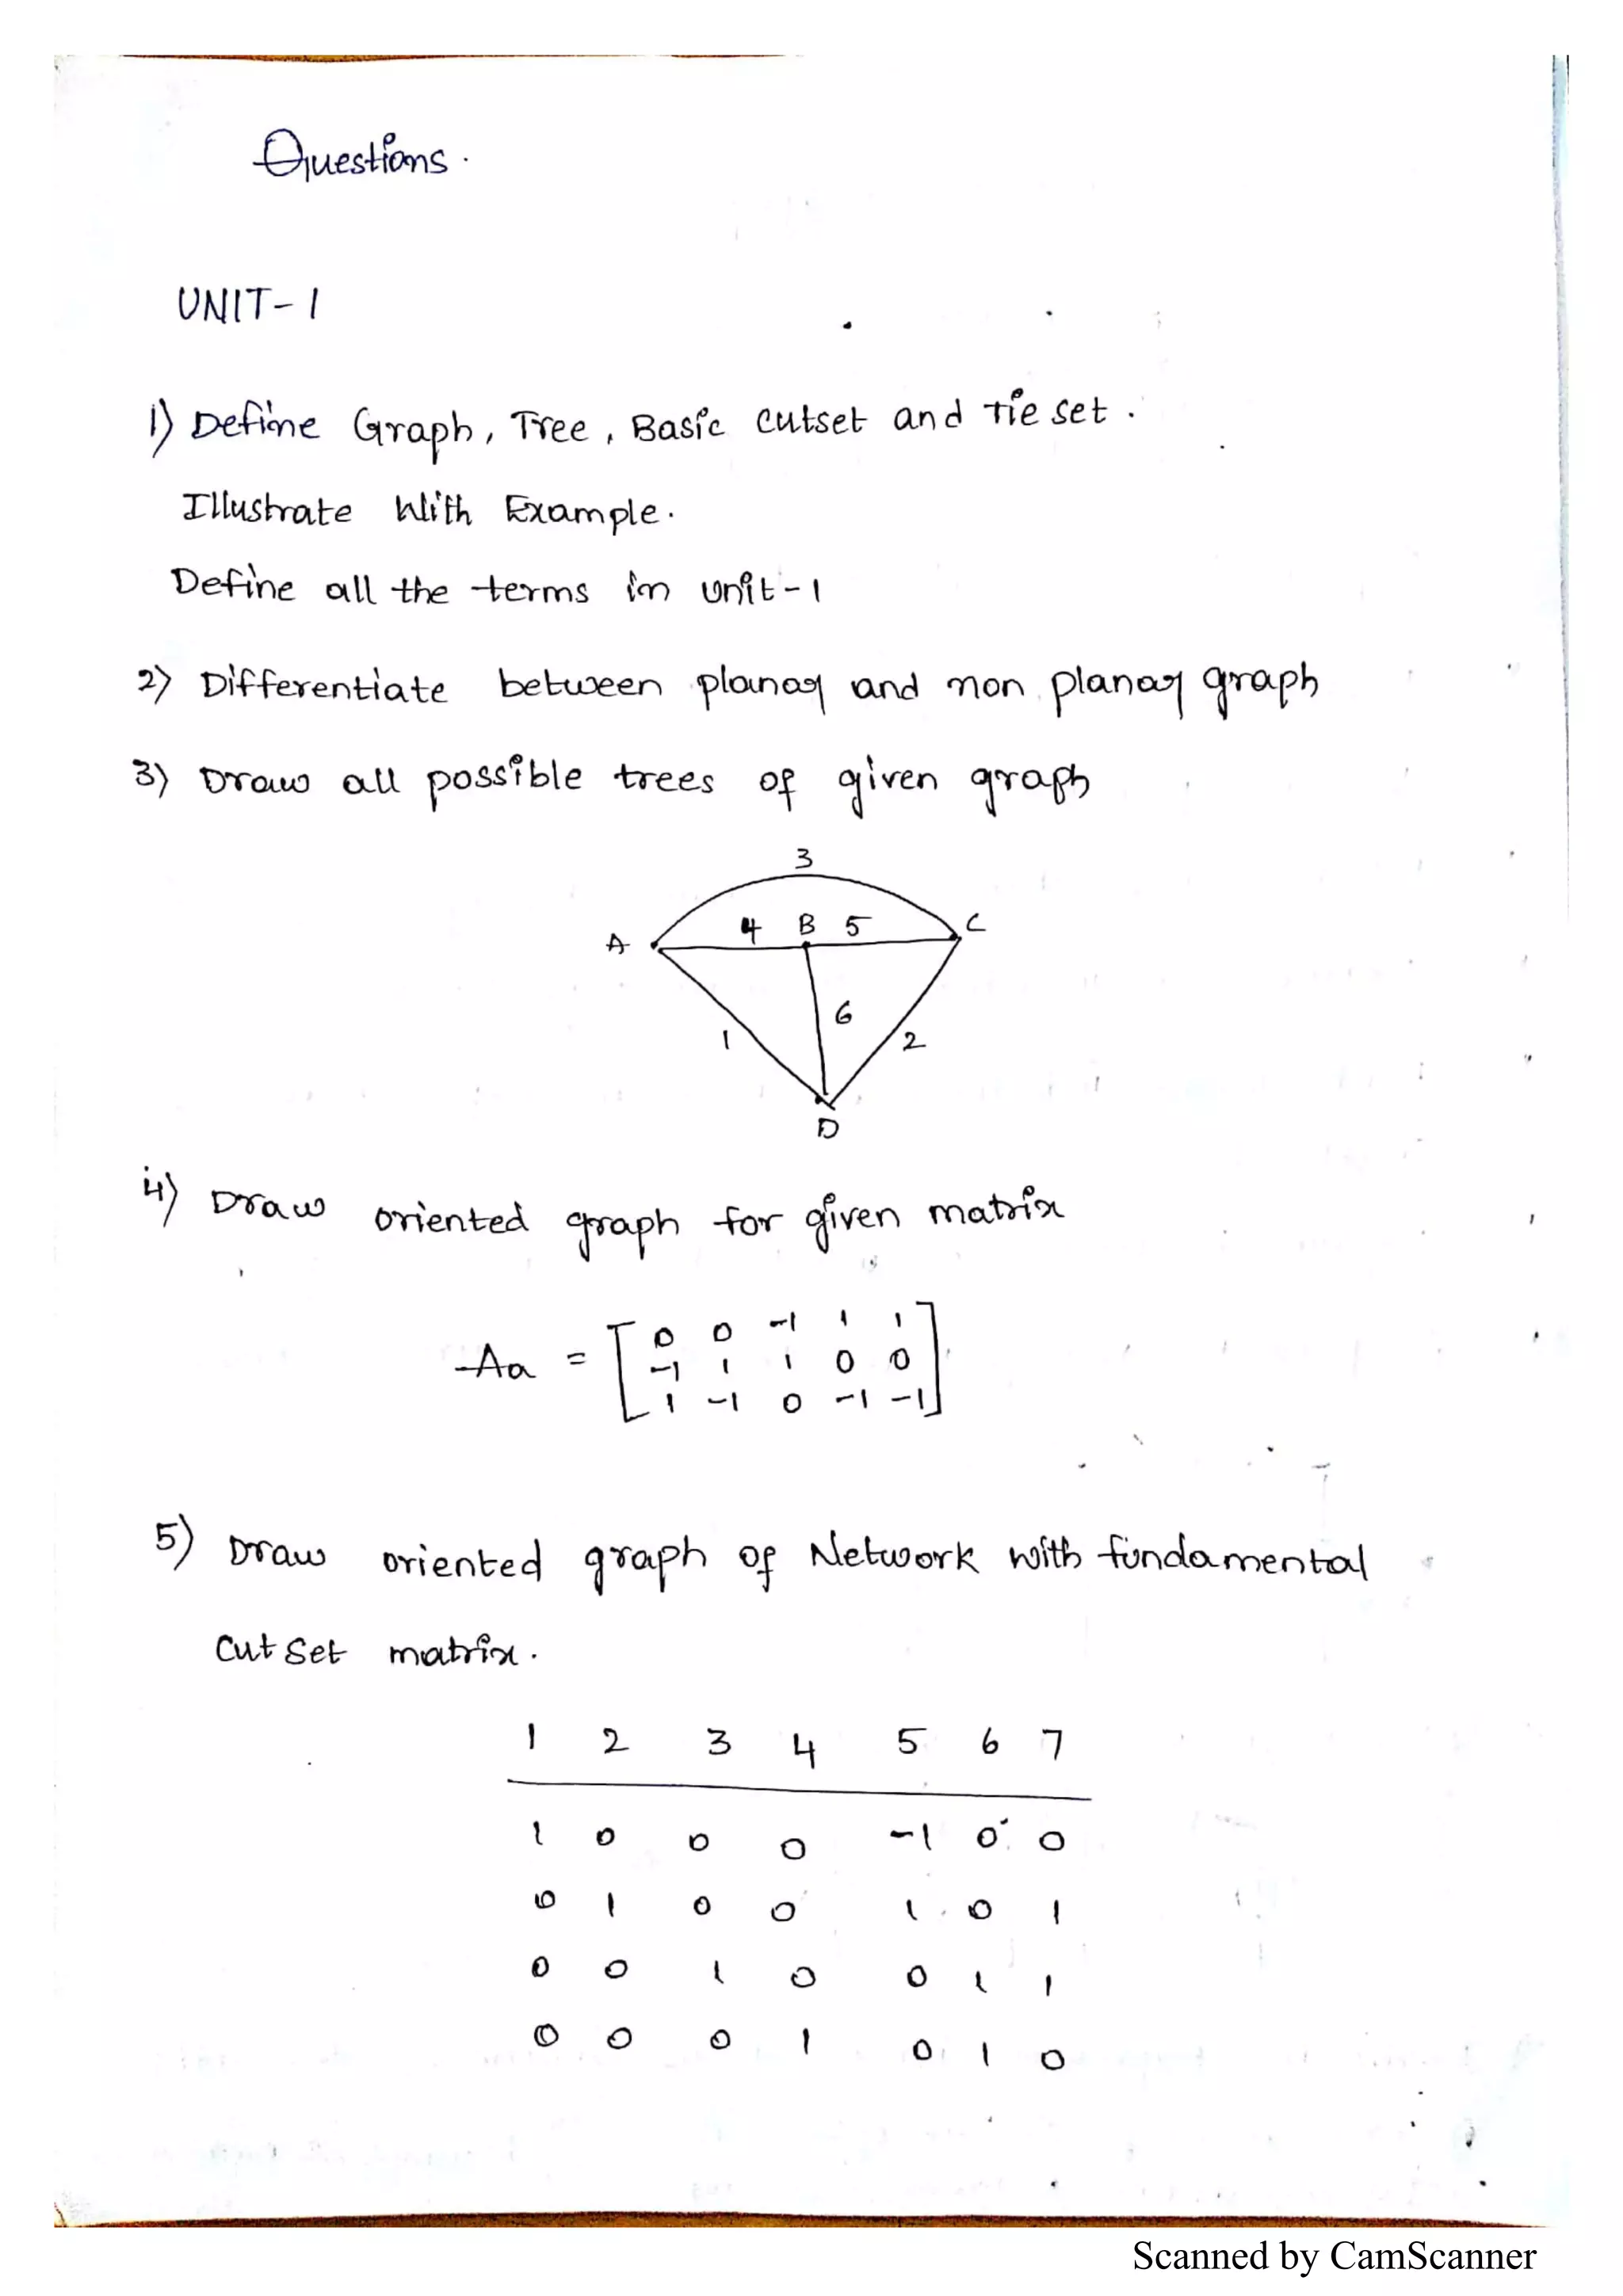 Questions.
UNIT-1
1) Define Graph, Tree, Basic cutset and Tie set.
Illustrate With Example.
Define all the terms in unit-1
2) Differentiate between planar and non planar graph
3) Draw all possible trees of given graph
3
A 4 B 5 C
6
1 2
D
4) Draw oriented graph for given matrix
0 0 -1 1 1
Aa = -1 1 1 0 0
1 -1 0 -1 -1
5) Draw oriented graph of Network with fundamental
Cut Set matrix.
1 2 3 4 5 6 7
1 0 0 0 -1 0 0
0 1 0 0 1 0 1
0 0 1 0 0 1 1
0 0 0 1 0 1 0
Scanned by CamScanner